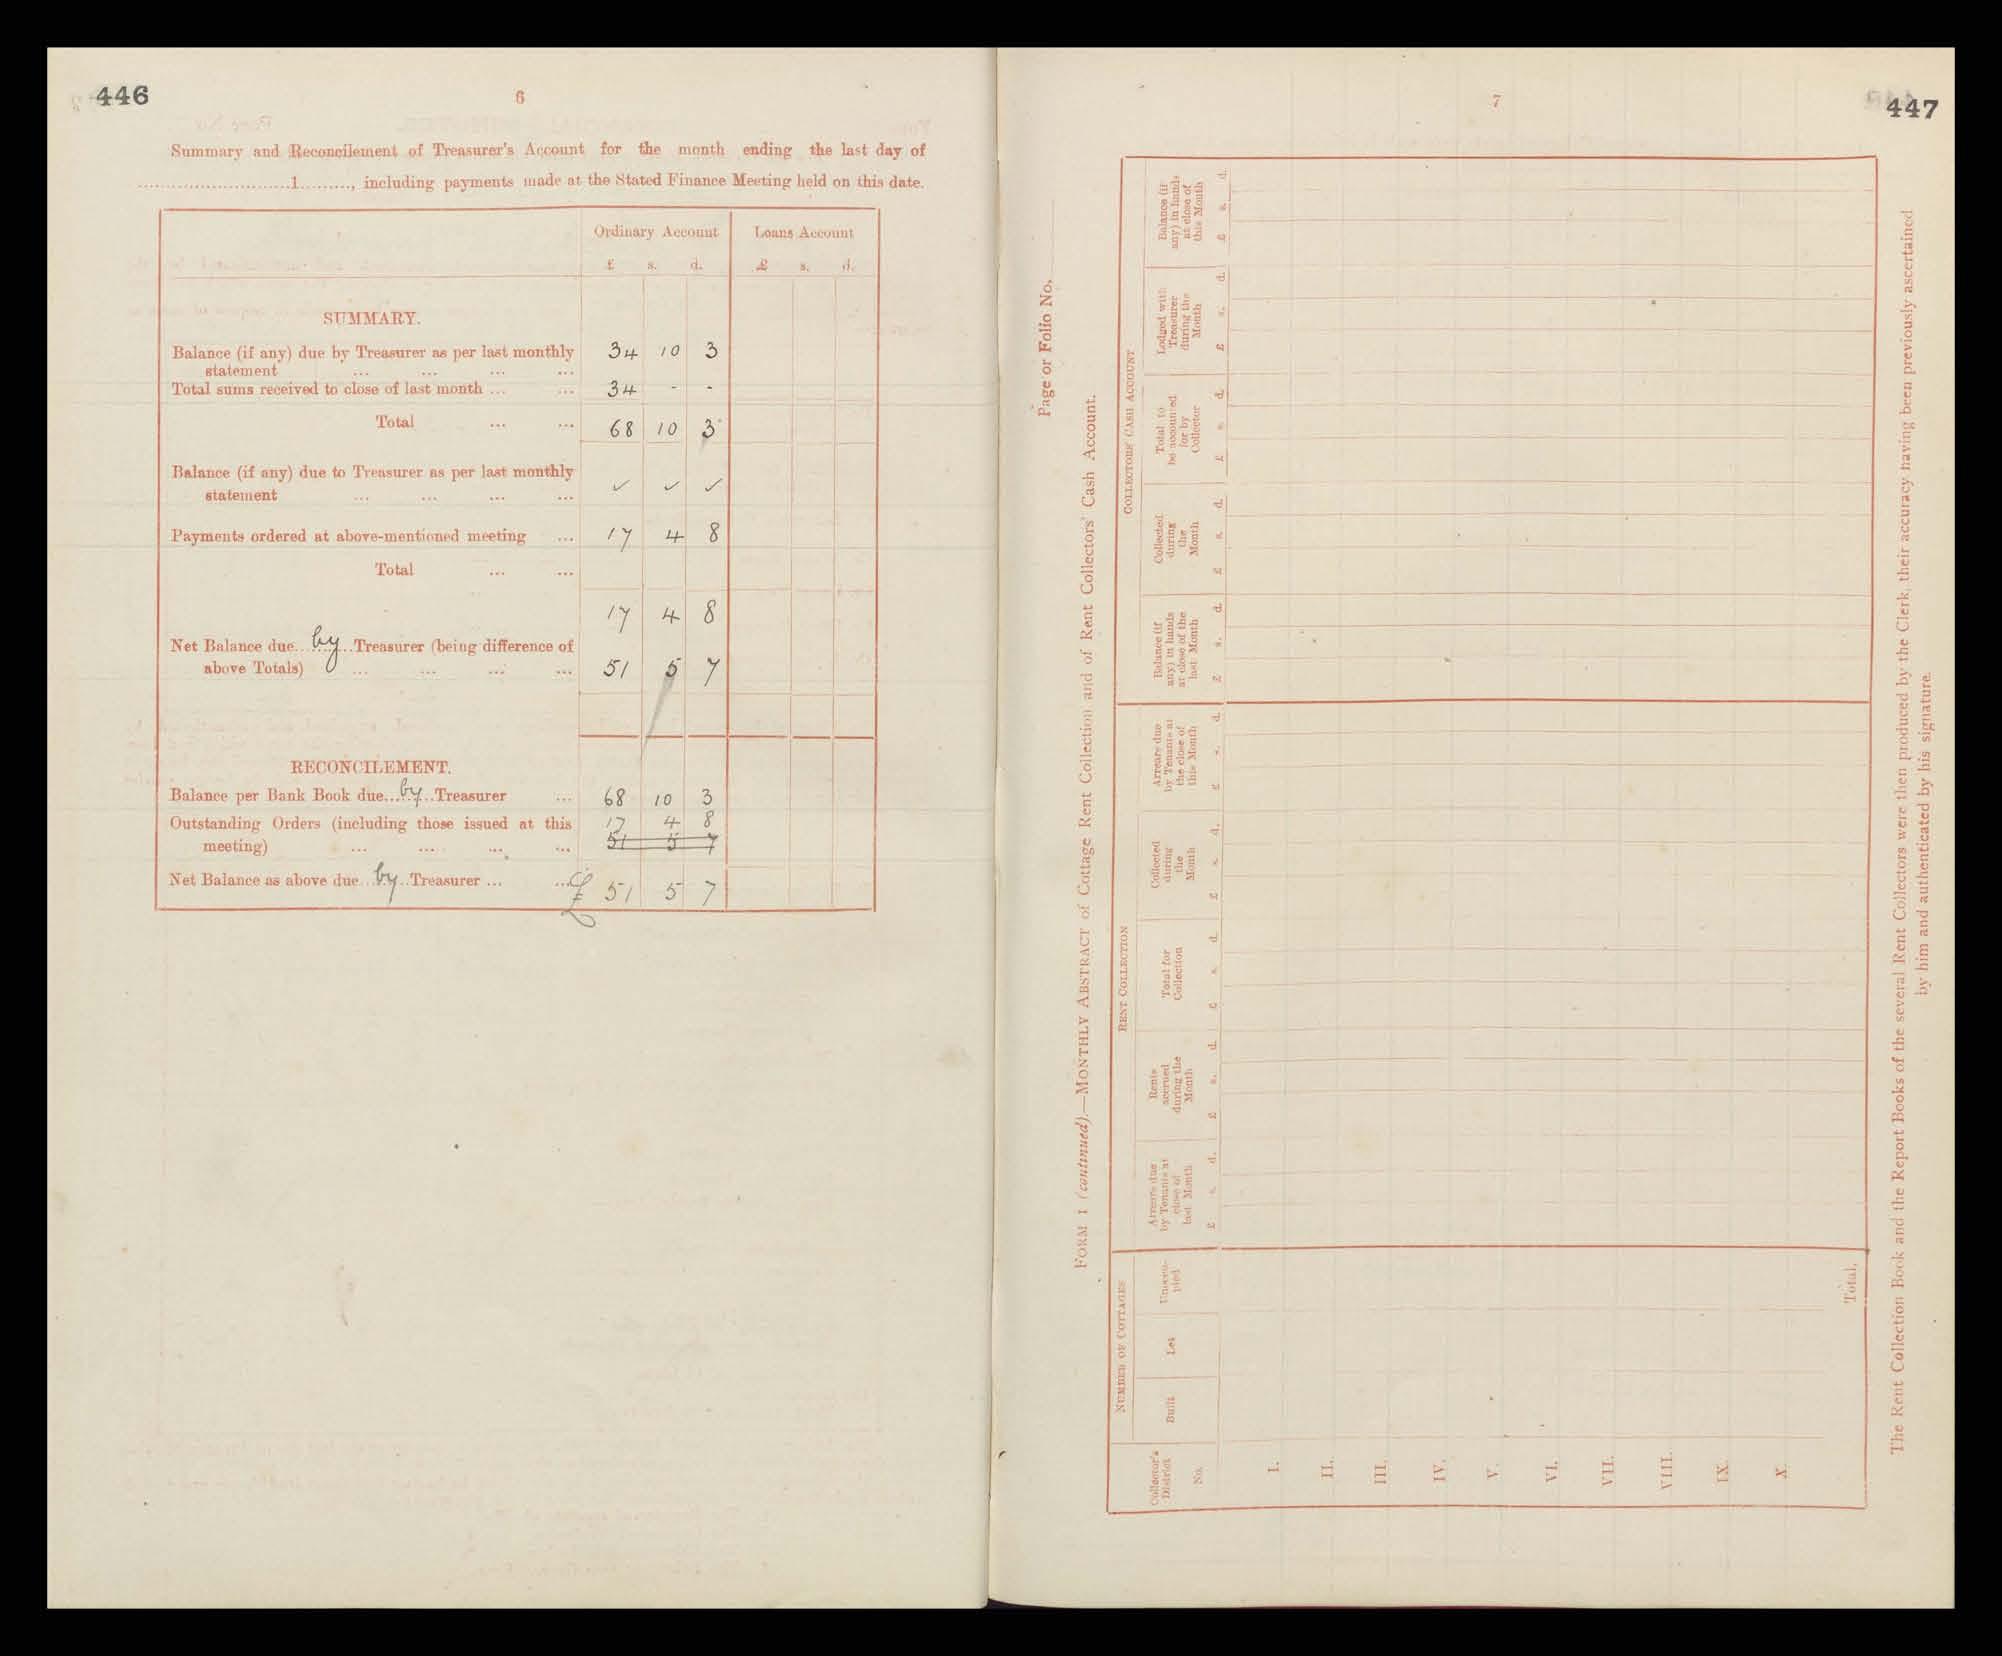 446
6
Summary and Reconcilement of Treasurer's Account for the month ending the last day of
............................1........., including payments made at the Stated Finance Meeting held on this date.
Ordinary Account Loans Account
£ s. d. £ s. d.
SUMMARY.
Balance (if any) due by Treasurer as per last monthly
statement ... ... ... ... 34 10 3
Total sums received to close of last month ... ... 34 - -
Total ... ... 68 10 3
Balance (if any) due to Treasurer as per last monthly
statement ... ... ... ... ✓ ✓ ✓
Payments ordered at above-mentioned meeting ... 17 4 8
Total ... ...
17 4 8
Net Balance due...by...Treasurer (being difference of
above Totals) ... ... ... ... 51 5 7
RECONCILEMENT.
Balance per Bank Book due...by...Treasurer ... 68 10 3
Outstanding Orders (including those issued at this 17 4 8
meeting) ... ... ... ... 51 5 7
Net Balance as above due...by...Treasurer ... ... £ 51 5 7
7
447
Page or Folio No.
FORM 1 (continued).—MONTHLY ABSTRACT of Cottage Rent Collection and of Rent Collectors' Cash Account.
NUMBER OF COTTAGES RENT COLLECTION COLLECTORS' CASH ACCOUNT
Collector's
District
No.
Built
Let
Unoccu-
pied
Arrears due
by Tenants at
close of
last Month
£ s. d.
Rents
accrued
during the
Month
£ s. d.
Total for
Collection
£ s. d.
Collected
during
the
Month
£ s. d.
Arrears due
by Tenants at
the close of
this Month
£ s. d.
Balance (if
any) in hands
at close of the
last Month
£ s. d.
Collected
during
the
Month
£ s. d.
Total to
be accounted
for by
Collector
£ s. d.
Lodged with
Treasurer
during the
Month
£ s. d.
Balance (if
any) in hands
at close of
this Month
£ s. d.
I.
II.
III.
IV.
V.
VI.
VII.
VIII.
IX.
X.
Total,
The Rent Collection Book and the Report Books of the several Rent Collectors were then produced by the Clerk, their accuracy having been previously ascertained
by him and authenticated by his signature.